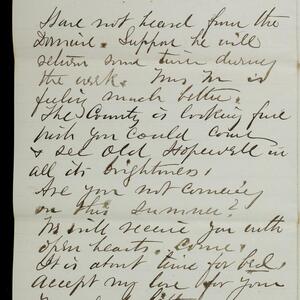 Have not heard from the
Dominie. Suppose he will
return some time during
the week. Mrs M is
feeling much better.
The County is looking fine
wish you could come
& see Old Hopewell in
all its brightness!
Are you not coming
on this summer?
We will receive you with
open hearts. Come.
It is about time for bed
Accept my love for your